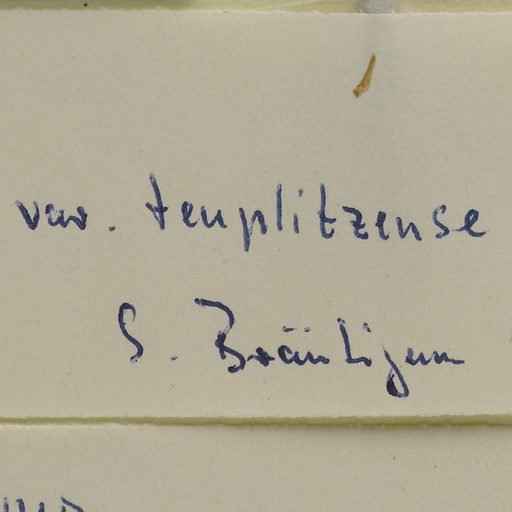 var. templitzense
S. Bräutigam